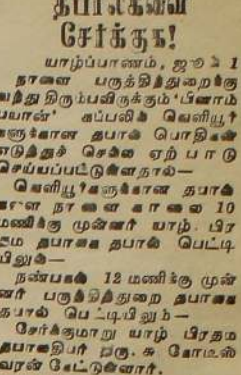 தபால்களை
சேர்க்குக!
யாழ்ப்பாணம், ஜூலை 1
நாளை பருத்தித்துறைக்கு
வந்து திரும்பவிருக்கும் 'பினாம்
பயான்' கப்பலில் வெளியூர்
களுக்கான தபால் பொதிகள்
எடுத்துச் செல்ல ஏற்பாடு
செய்யப்பட்டுள்ளதால்—
வெளியூர்களுக்கான தபால்
களை நாளை காலை 10
மணிக்கு முன்னர் யாழ். பிர
தம தபாலக தபால் பெட்டி
யிலும்—
நண்பகல் 12 மணிக்கு முன்
னர் பருத்தித்துறை தபாலக
தபால் பெட்டியிலும்—
சேர்க்குமாறு யாழ் பிரதம
தபாலதிபர் திரு. சு கோடீஸ்
வரன் கேட்டுள்ளார்.